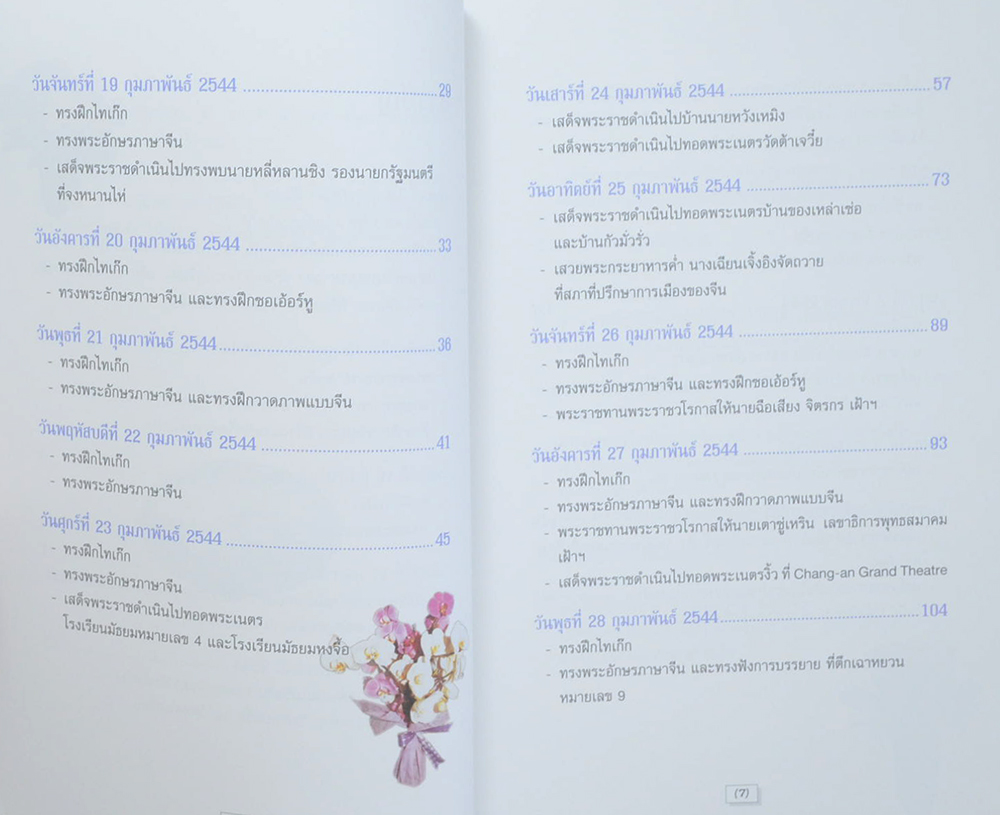 วันจันทร์ที่ 19 กุมภาพันธ์ 2544 ........................................ 29
- ทรงฝึกไทเก๊ก
- ทรงพระอักษรภาษาจีน
- เสด็จพระราชดำเนินไปทรงพบนายหลี่หลานชิง รองนายกรัฐมนตรี
ที่จงหนานไห่
วันอังคารที่ 20 กุมภาพันธ์ 2544 ........................................ 33
- ทรงฝึกไทเก๊ก
- ทรงพระอักษรภาษาจีน และทรงฝึกซอเอ้อร์หู
วันพุธที่ 21 กุมภาพันธ์ 2544 ........................................ 36
- ทรงฝึกไทเก๊ก
- ทรงพระอักษรภาษาจีน และทรงฝึกวาดภาพแบบจีน
วันพฤหัสบดีที่ 22 กุมภาพันธ์ 2544 ........................................ 41
- ทรงฝึกไทเก๊ก
- ทรงพระอักษรภาษาจีน
วันศุกร์ที่ 23 กุมภาพันธ์ 2544 ........................................ 45
- ทรงฝึกไทเก๊ก
- ทรงพระอักษรภาษาจีน
- เสด็จพระราชดำเนินไปทอดพระเนตร
โรงเรียนมัธยมหมายเลข 4 และโรงเรียนมัธยมหงจื้อ
วันเสาร์ที่ 24 กุมภาพันธ์ 2544 ........................................ 57
- เสด็จพระราชดำเนินไปบ้านนายหวังเหมิง
- เสด็จพระราชดำเนินไปทอดพระเนตรวัดต้าเจวี๋ย
วันอาทิตย์ที่ 25 กุมภาพันธ์ 2544 ........................................ 73
- เสด็จพระราชดำเนินไปทอดพระเนตรบ้านของเหล่าเซ่อ
และบ้านกัวมั่วรั่ว
- เสวยพระกระยาหารค่ำ นางเฉียนเจิ้งอิงจัดถวาย
ที่สภาที่ปรึกษาการเมืองของจีน
วันจันทร์ที่ 26 กุมภาพันธ์ 2544 ........................................ 89
- ทรงฝึกไทเก๊ก
- ทรงพระอักษรภาษาจีน และทรงฝึกซอเอ้อร์หู
- พระราชทานพระราชวโรกาสให้นายฉือเสียง จิตรกร เฝ้าฯ
วันอังคารที่ 27 กุมภาพันธ์ 2544 ........................................ 93
- ทรงฝึกไทเก๊ก
- ทรงพระอักษรภาษาจีน และทรงฝึกวาดภาพแบบจีน
- พระราชทานพระราชวโรกาสให้นายเตาซู่เหริน เลขาธิการพุทธสมาคม
เฝ้าฯ
- เสด็จพระราชดำเนินไปทอดพระเนตรงิ้ว ที่ Chang-an Grand Theatre
วันพุธที่ 28 กุมภาพันธ์ 2544 ........................................ 104
- ทรงฝึกไทเก๊ก
- ทรงพระอักษรภาษาจีน และทรงฟังการบรรยาย ที่ตึกเฉาหยวน
หมายเลข 9
(7)